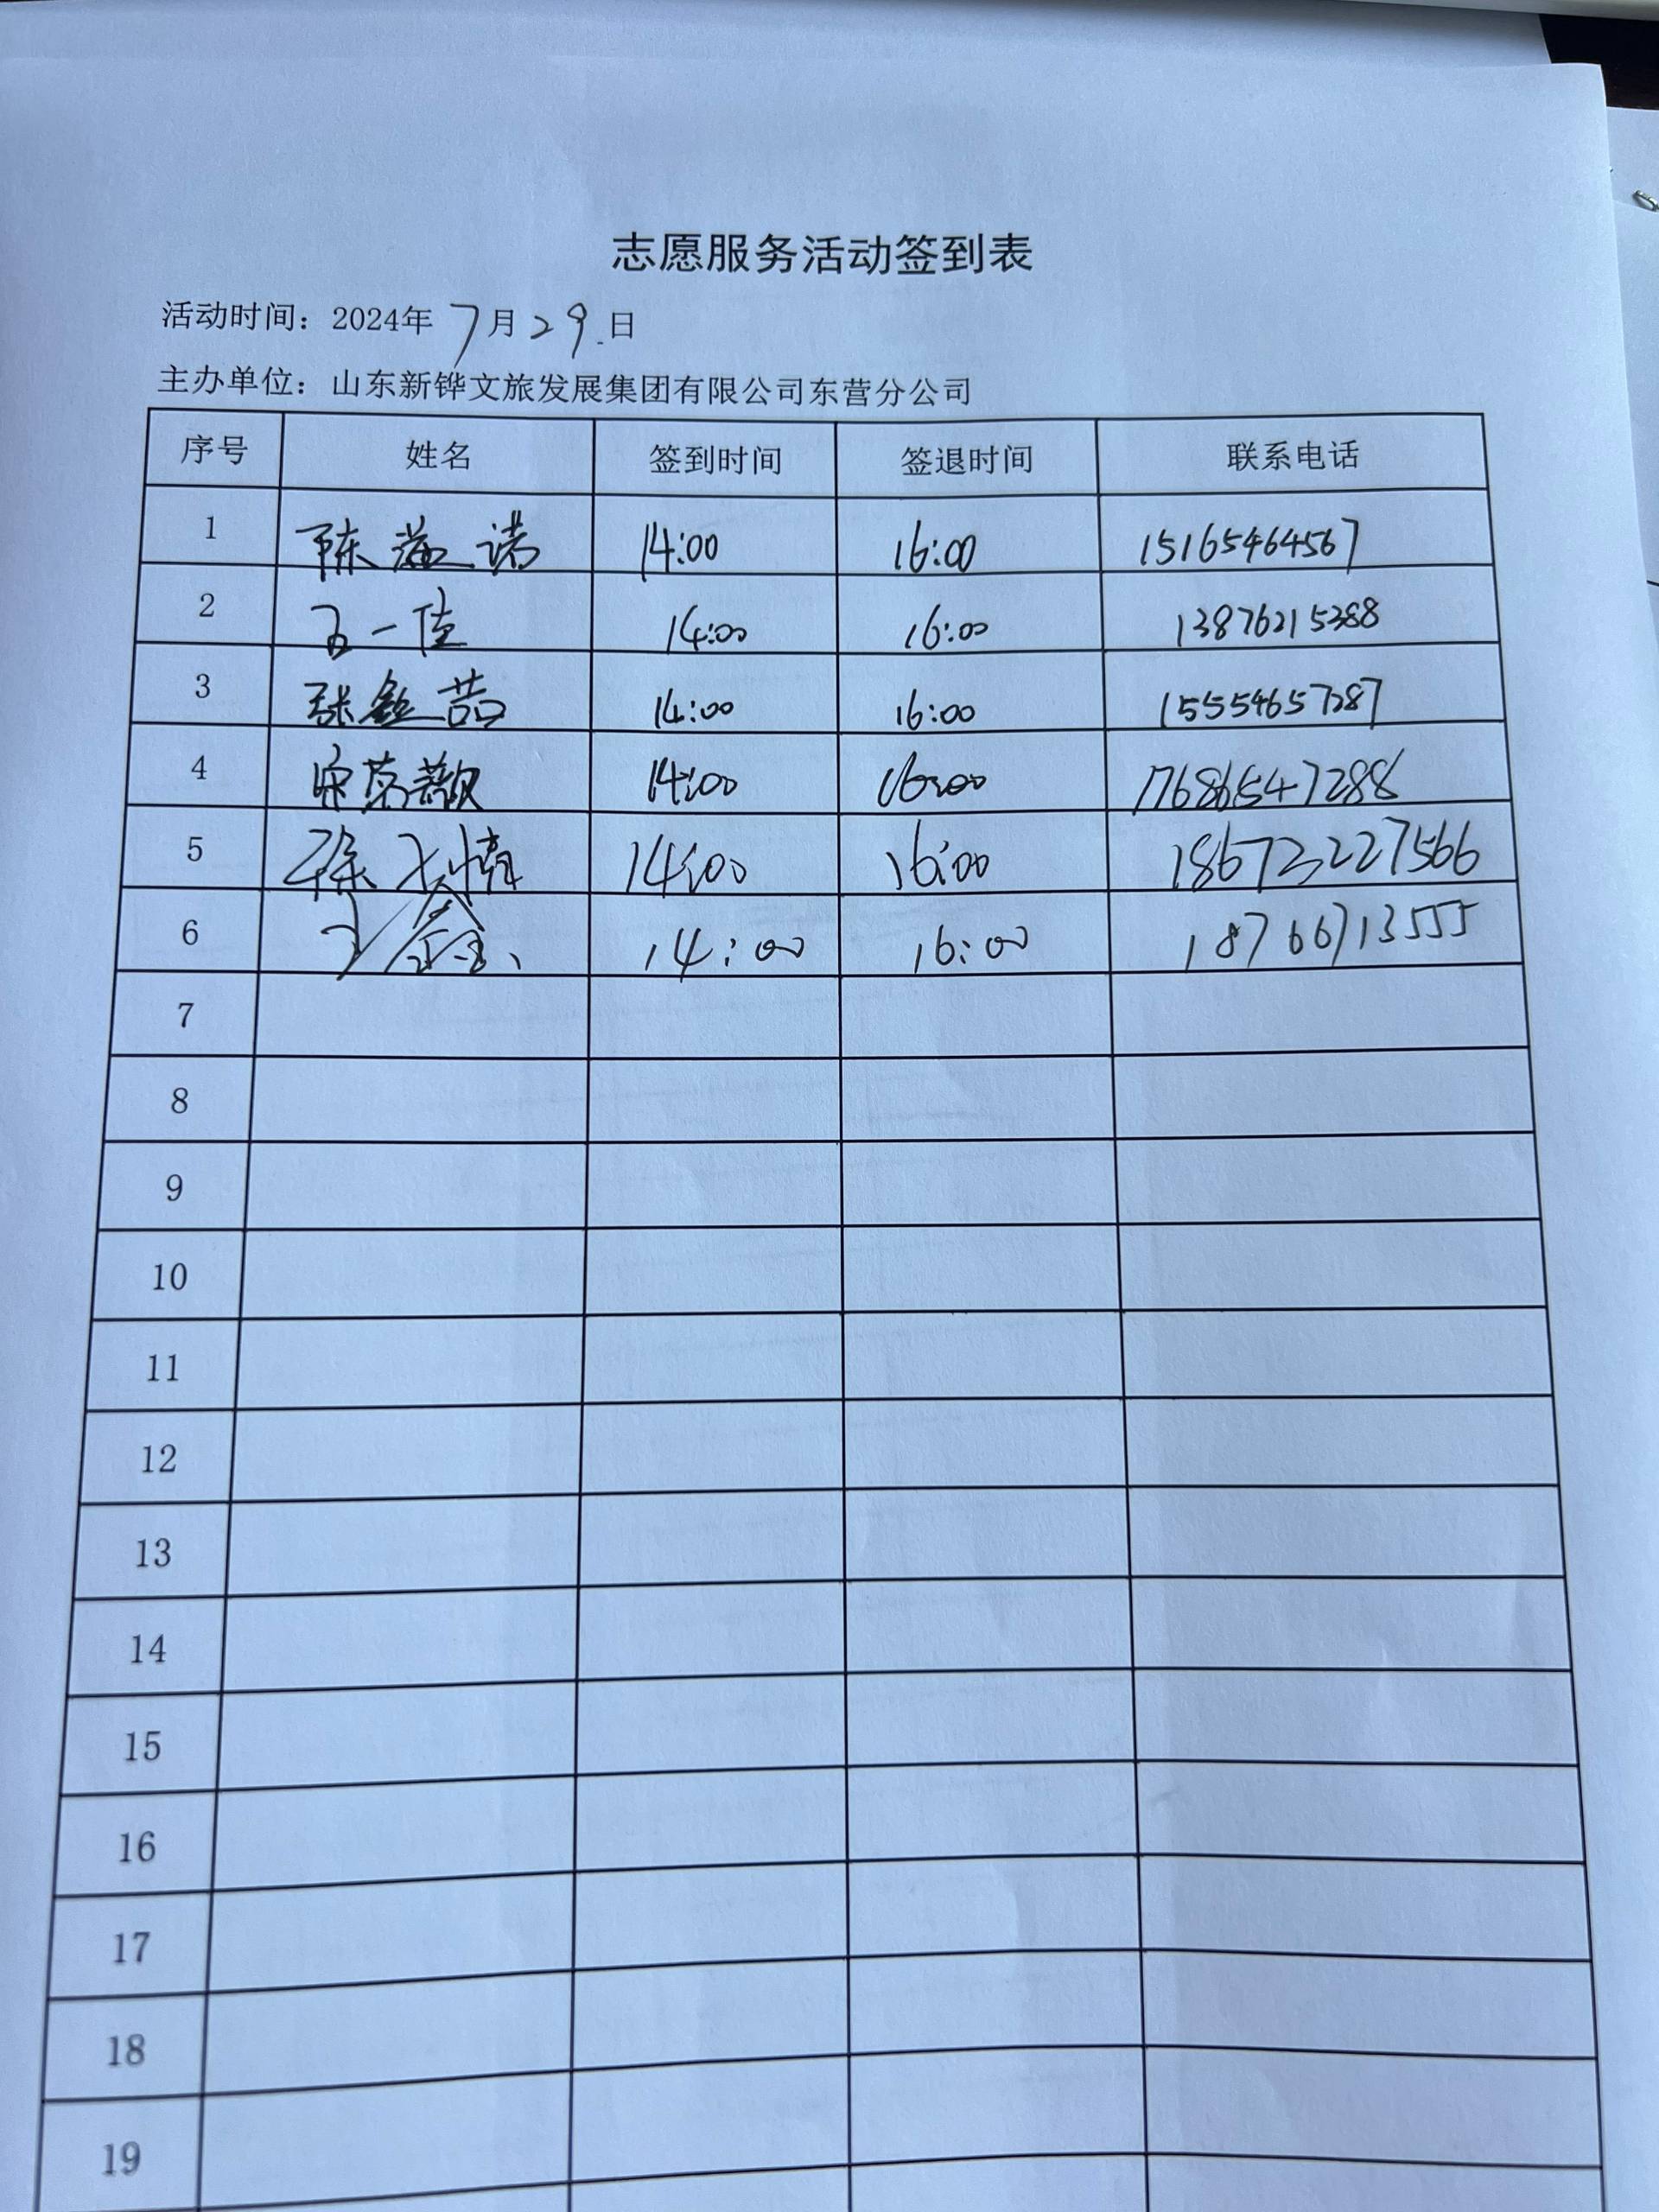 志愿服务活动签到表
活动时间：2024年 7月29日
主办单位：山东新铧文旅发展集团有限公司东营分公司
序号 姓名 签到时间 签退时间 联系电话
1 陈 诺 14:00 16:00 15165464567
2 一佳 14:00 16:00 13876215388
3 张 14:00 16:00 15554657287
4 宋 14:00 16:00 17686547288
5 徐 14:00 16:00 18673227566
6 14:00 16:00 18766713555
7
8
9
10
11
12
13
14
15
16
17
18
19